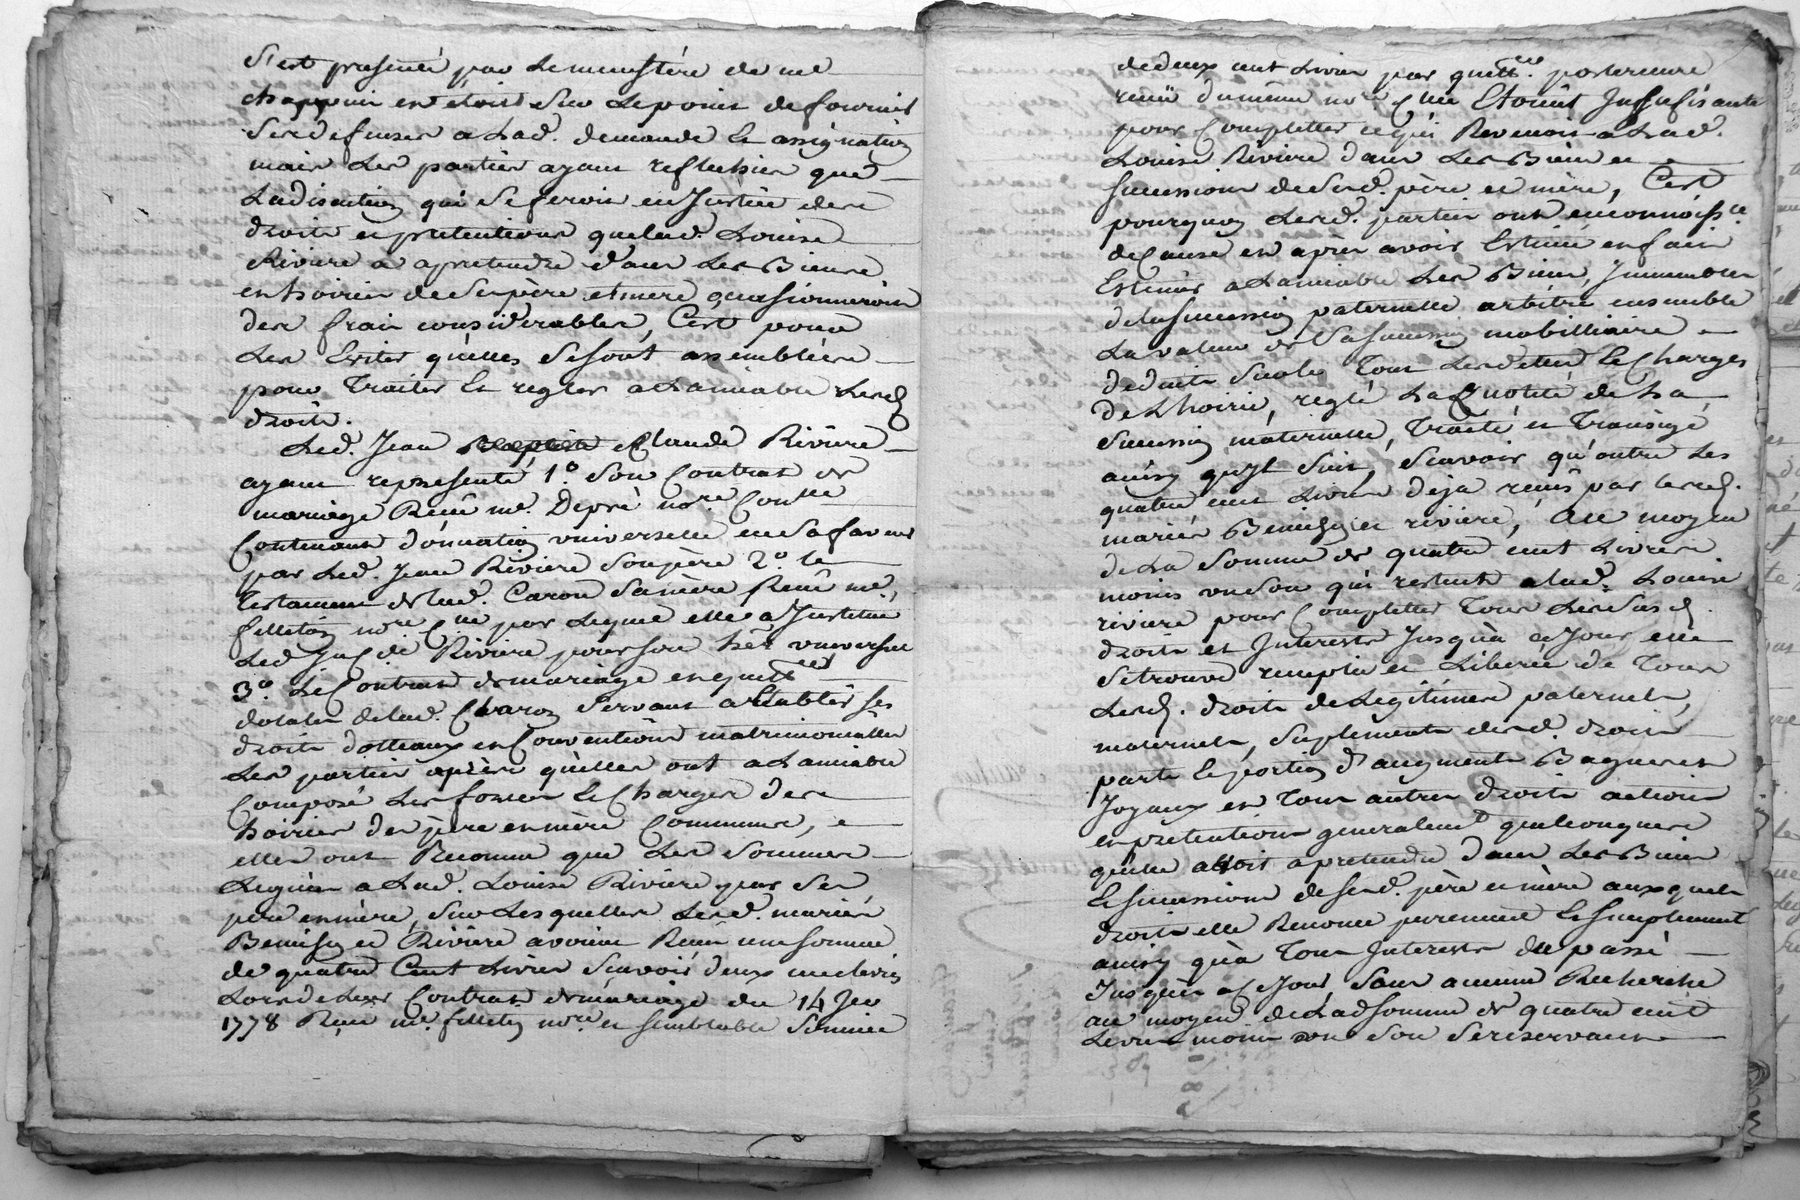 s'est presenté par le ministére de me
chappuis en étoit sur le point de fournir
ses defenses a lad. demande & assignation
mais les parties ayant reflechies que
la discution qui se feroit en Justice des
droits et pretentions que lad. Louise
Riviere a a pretendre dans les Biens
en hoiries de ses père et mere occasionneroit
des frais considerables, C'est pour
les Eviter qu'elles se sont assemblées
pour Traiter & regler a L'amiable lesd
droits.
Led. Jean Claude Riviere
ayant representé 1°. son Contrat de
mariage Reçu me. Depré nore. Conne
Contenant donnation universelle en sa faveur
par led. Jean Riviere son père 2°. le
testament de lad. Caron sa mère Reçu me.
filleton nore. par lequel elle a Institué
led Jn. Cde. Riviere pour son her. universel
3°. le Contrat de mariage en quitt
dotales de lad. Charon servant a Etablir ses
droits dotteaux en Conventions matrimonialles
les parties après qu'elles ont a L'amiable
Composé les forces & Charges des
hoiries des père en mère Communs,
elles ont Reconnu que les sommes
Leguées a lad. Louise Riviere par ses
père en mère, sur lesquelles lesd. mariés
et Riviere avoient Reçu une somme
de quatre Cent Livres sçavoir deux cent livres
Lors de leur Contrat de mariage du 14 Jer
1778 Reçu me. filleton nore. et semblable somme
de deux cent Livres par quitt. posterieure
reçüe du même nore. Etoient Insufisante
pour Completter ce qui Revenoit a lad.
Louise Riviere dans les Biens et
successions de sesd. père et mère, C'est
pourquoy lesd. parties ont en connoissce.
de Cause et après avoir Estimé en fait
Estimer a L'amiable les Biens, Immeubles
de la succession paternelle arbitré ensemble
La valeur de sa succession mobilliaire
déduite Tous les dettes & Charges
de L'hoirie, reglé La Quotité de La
succession maternelle, Traité et Transigé
ainsy qu'jl suit, sçavoir qu'outre les
quatre cent Livres déja reçus par lesd.
mariés et riviere, Au moyen
de La somme de quatre cent Livres
moins un sou qui restent a lad. Louise
riviere pour Completter Tous lesdits
droits et Interests Jusqu'à ce Jour elle
se trouve remplie et Liberée de Tous
lesd. droits de Legitimes paternels,
maternels, suplements desd. droits
parts & portions d'augments Bagues et
Joyaux et Tous autres droits actions
en prétentions generalemt quelconques
qu'elle avoit a pretendre dans les Biens
& successions de sesd. père et mère auxquels
droits elle Renonce purement & simplement
ainsy qu'à Tous Interests du passé
Jusques a ce Jour sans aucune Recherche
au moyen de Lad somme de quatre cent
Livres moins un sou se reservant